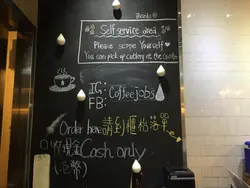 thanks
Self service area
Please serve yourself
You can pick up cutlery at the counter
IG: Coffee job's
FB:
Order here 請到櫃檯落單
Cash only